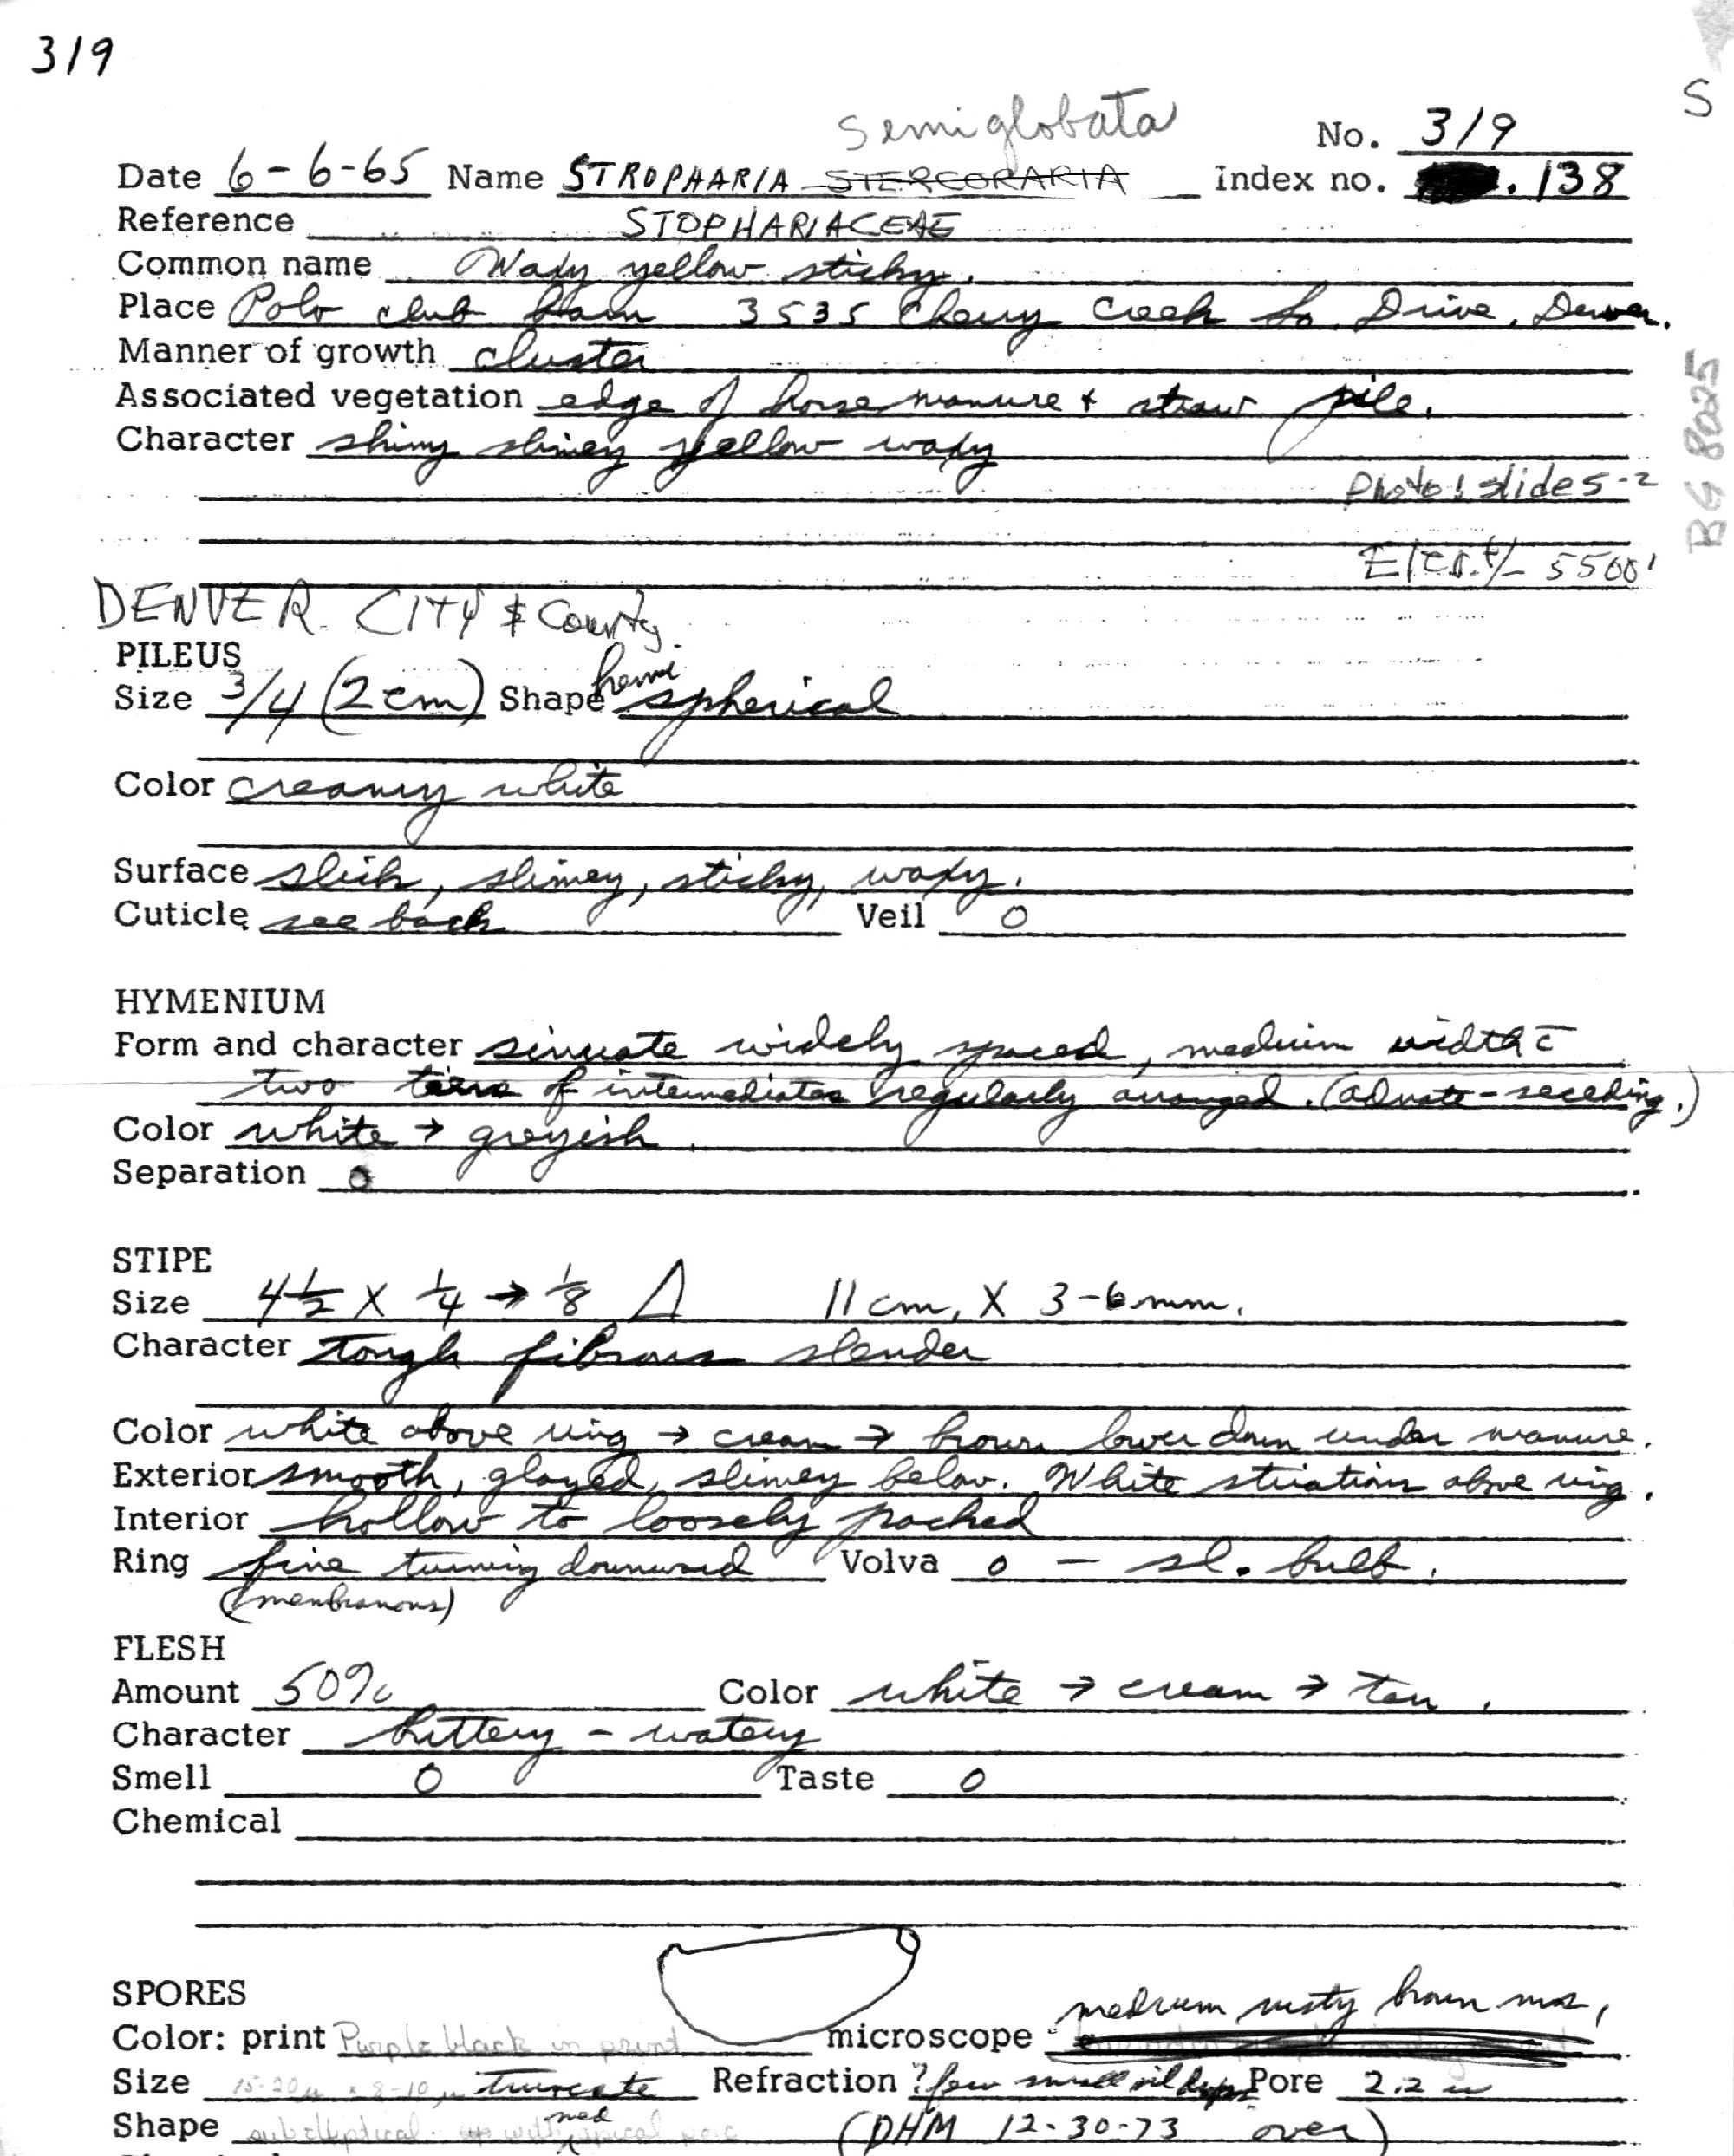 319
S
semiglobata
No. 319
Date 6-6-65 Name STROPHARIA STERCORARIA Index no. .138
Reference STOPHARIACEAE
Common name Waxy yellow sticky.
Place Polo club barn 3535 Cherry Creek So. Drive, Denver.
Manner of growth cluster
Associated vegetation edge of horse manure & straw pile.
Character shiny slimey yellow waxy
Photo: slides-2
BG 8025
Elev. +/- 5500'
DENVER CITY & County
PILEUS
Size 3/4 (2cm) Shape hemi spherical
Color creamy white
Surface slick, slimey, sticky, waxy.
Cuticle see back Veil 0
HYMENIUM
Form and character sinuate widely spaced, medium width c̄
two tiers of intermediates regularly arranged. (adnate-seceding.)
Color white → greyish.
Separation 0
STIPE
Size 4½ X ¼ → ⅛ Δ 11 cm, X 3-6mm.
Character Tough fibrous slender
Color white above ring → cream → brown lower down under manure.
Exterior smooth, glazed, slimey below. White striations above ring.
Interior hollow to loosely packed
Ring fine turning downward Volva 0 - sl. bulb.
(membranous)
FLESH
Amount 50% Color white → cream → tan.
Character buttery - watery
Smell 0 Taste 0
Chemical
SPORES
medium rusty brown
Color: print Purple black in print microscope
Size 15-20µ x 8-10µ truncate Refraction ? few small oil drops Pore 2.2 u
Shape subelliptical with apical pore med (DHM 12-30-73 over)